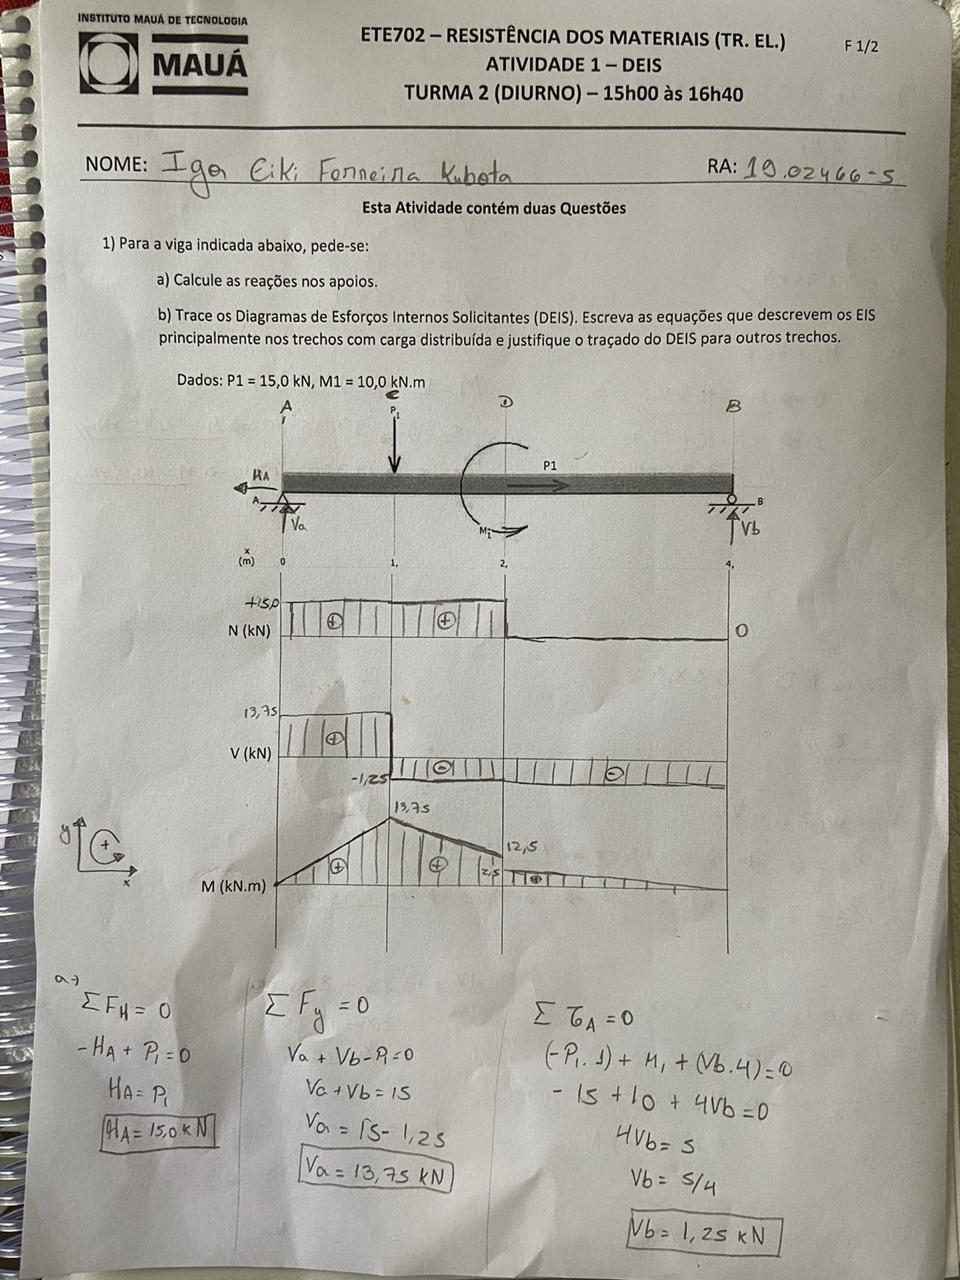 INSTITUTO MAUÁ DE TECNOLOGIA
MAUÁ
ETE702 – RESISTÊNCIA DOS MATERIAIS (TR. EL.)
F 1/2
ATIVIDADE 1 – DEIS
TURMA 2 (DIURNO) – 15h00 às 16h40
NOME: Igor Eiki Ferreira Kubota
RA: 19.02466-5
Esta Atividade contém duas Questões
1) Para a viga indicada abaixo, pede-se:
a) Calcule as reações nos apoios.
b) Trace os Diagramas de Esforços Internos Solicitantes (DEIS). Escreva as equações que descrevem os EIS
principalmente nos trechos com carga distribuída e justifique o traçado do DEIS para outros trechos.
Dados: P1 = 15,0 kN, M1 = 10,0 kN.m
A C D B
P1
HA
P1
A
B
Va
M1
Vb
x
(m) 0 1, 2, 4,
+15,0
⊕ ⊕
N (kN)
0
13,75
⊕
V (kN)
⊖ ⊖
-1,25
13,75
y
+
x
12,5
⊕ ⊕ 2,5 ⊕
M (kN.m)
a→
ΣFH = 0
-HA + P1 = 0
HA = P1
HA = 15,0 kN
Σ Fy = 0
Va + Vb - P1 = 0
Va + Vb = 15
Va = 15 - 1,25
Va = 13,75 kN
Σ τA = 0
(-P1 . 1) + M1 + (Vb . 4) = 0
- 15 + 10 + 4Vb = 0
4Vb = 5
Vb = 5/4
Vb = 1,25 kN